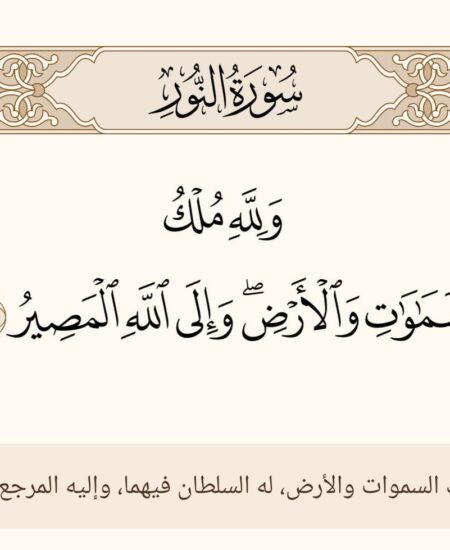 سُورَةُ النُّورِ
وَلِلَّهِ مُلۡكُ
وَٱلۡأَرۡضِۖ وَإِلَى ٱللَّهِ ٱلۡمَصِيرُ
السموات والأرض، له السلطان فيهما، وإليه المرجع